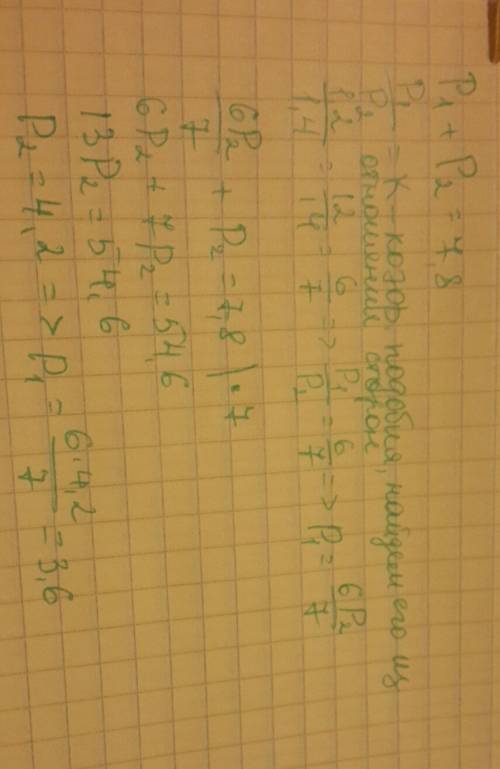 P₁ + P₂ = 7,8
P₁/P₂ = K – коэф. подобия, найдем его из
отношений сторон
1,2/1,4 = 12/14 = 6/7 => P₁/P₂ = 6/7 => P₁ = 6P₂/7
6P₂/7 + P₂ = 7,8 | · 7
6P₂ + 7P₂ = 54,6
13P₂ = 54,6
P₂ = 4,2 => P₁ = 6·4,2/7 = 3,6